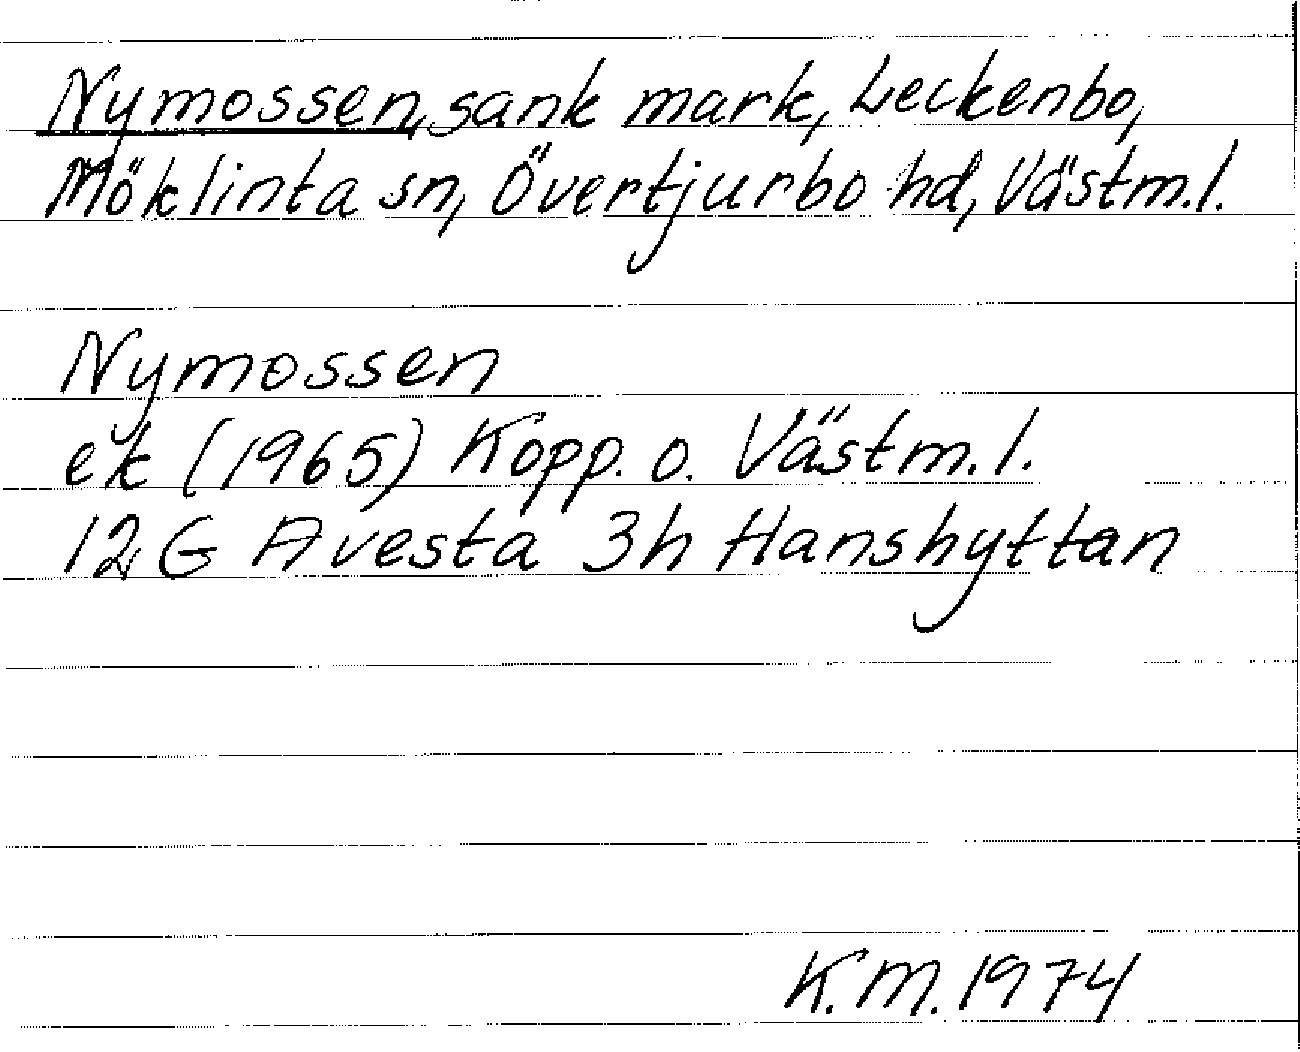 Nymossen, sank mark, Leckenbo,
Möklinta sn, Övertjurbo hd, Västm.l.
Nymossen
ek (1965) Kopp. o. Västm.l.
12 G Avesta 3h Hanshyttan
K.M. 1974